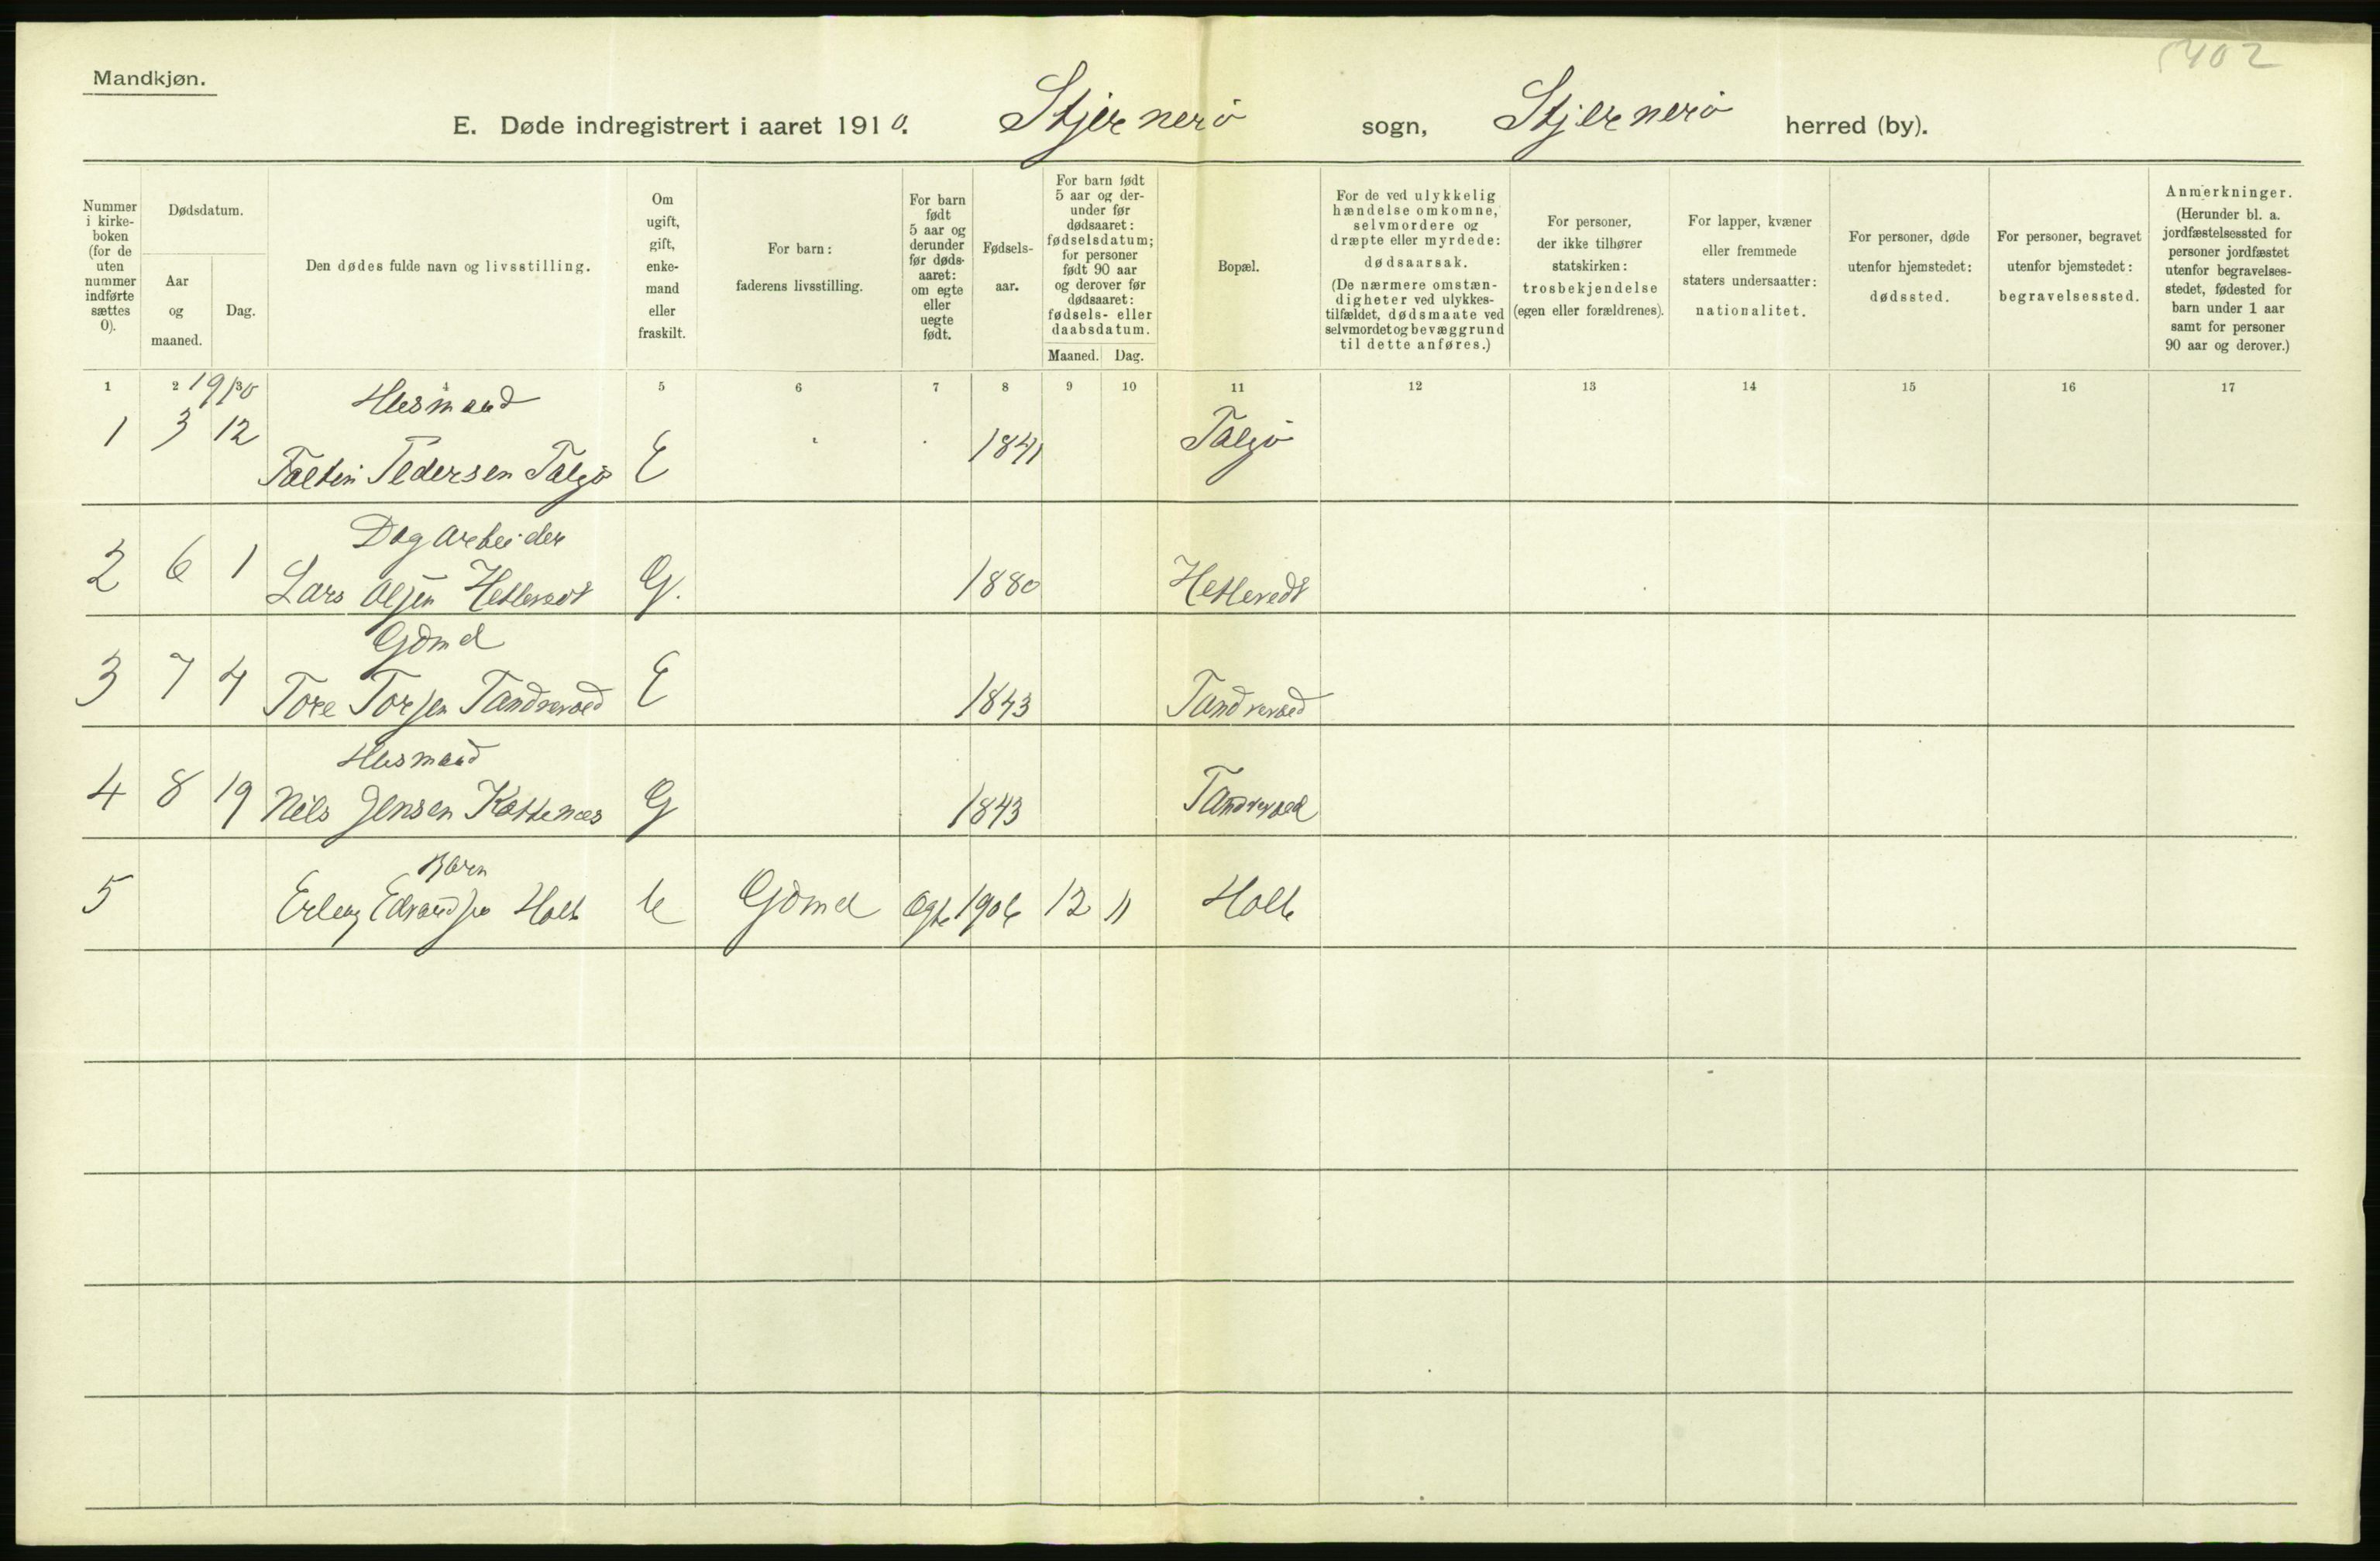 5402
Mandkjøn.
E. Døde indregistrert i aaret 1910. Stjernerö sogn, Stjernerö herred (by).
Nummer i kirke-boken (for de uten nummer indførte sættes 0).
Dødsdatum.
Aar og maaned.
Dag.
Den dødes fulde navn og livsstilling.
Om ugift, gift, enke-mand eller fraskilt.
For barn: faderens livsstilling.
For barn født 5 aar og derunder før døds-aaret: om egte eller uegte født.
Fødsels-aar.
For barn født 5 aar og der-under før dødsaaret: fødselsdatum; for personer født 90 aar og derover før dødsaaret: fødsels- eller daabsdatum.
Maaned. Dag.
Bopæl.
For de ved ulykkelig hændelse omkomne, selvmordere og dræpte eller myrdede: dødsaarsak. (De nærmere omstæn-digheter ved ulykkes-tilfældet, dødsmaate ved selvmordet og bevæggrund til dette anføres.)
For personer, der ikke tilhører statskirken: trosbekjendelse (egen eller forældrenes).
For lapper, kvæner eller fremmede staters undersaatter: nationalitet.
For personer, døde utenfor hjemstedet: dødssted.
For personer, begravet utenfor bjemstedet: begravelsessted.
Anmerkninger. (Herunder bl. a. jordfæstelsessted for personer jordfæstet utenfor begravelses-stedet, fødested for barn under 1 aar samt for personer 90 aar og derover.)
1 2 3 4 5 6 7 8 9 10 11 12 13 14 15 16 17
1910
Husmand
1 3 12 Faltin Pedersen Talgö E 1841 Talgö
Dagarbeider
2 6 1 Lars Olsen G. 1880
Gdmd
3 7 4 Tore Torsen Tandrevold E 1843 Tandrevold
Husmand
4 8 19 Nils Jensen Kattenæs G 1843 Tandrevold
Barn
5 Erling Edvardsen Holt U Gdmd Ægte 1906 12 11 Holt